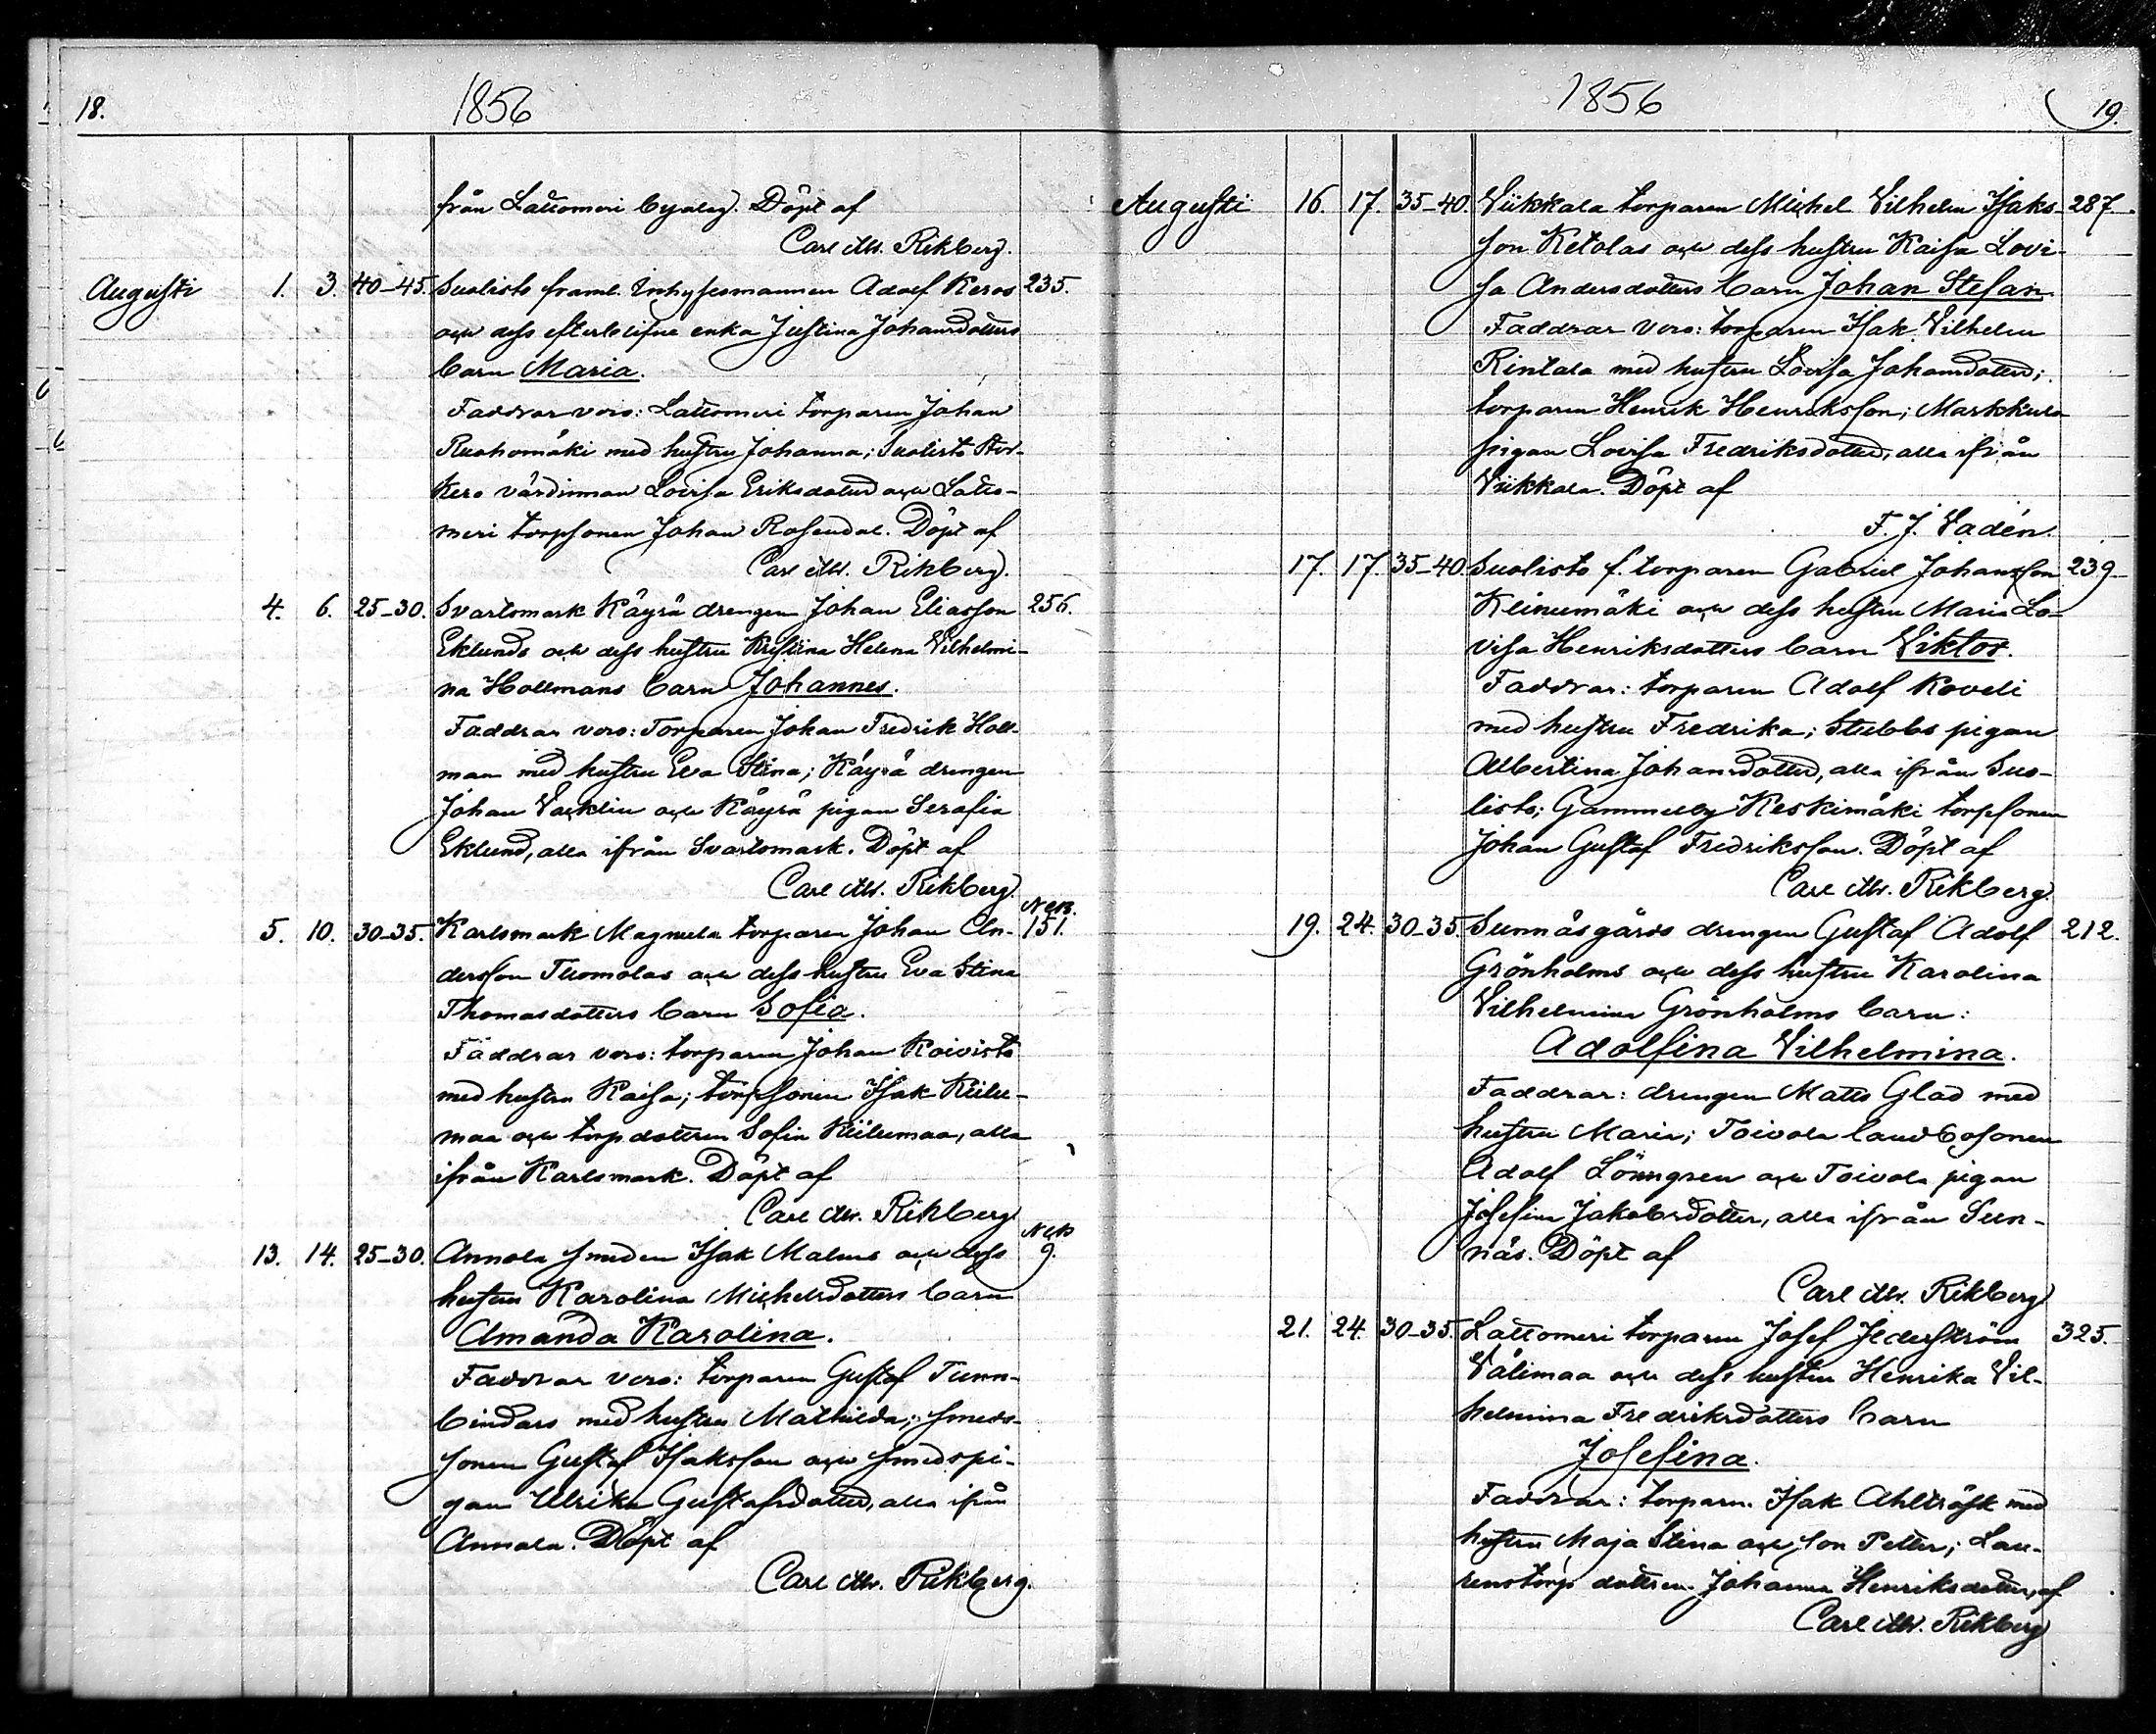 18.
1856
från Lattomeri byalag. Döpt af
Carl M. Rikberg.
Augusti 1. 3. 40-45. Suolisto framl. Inhysesmannen Adolf Keros 235.
och dess efterlefne enka Justina Johansdotters
barn Maria.
Faddrar voro: Lattomeri torparen Johan
Ruohomäki med hustru Johanna; Suolisto Stor-
Kero värdinnan Lovisa Eriksdotter och Latto-
meri torpsonen Johan Rosendal. Döpt af
Carl M. Rikberg.
4. 6. 25-30. Svartsmark Käyrä drengen Johan Eliasson 256.
Eklunds och dess hustru Kristina Helena Vilhelmi-
na Hollmans barn Johannes.
Faddrar voro: Torparen Johan Fredrik Holl-
man med hustru Eva Stina; Käyrä drengen
Johan Vacklin och Käyrä pigan Serafia
Eklund, alla ifrån Svartsmark. Döpt af
Carl M. Rikberg.
5. 10. 30-35. Karlsmark Magnula torparen Johan An- 151.
dersson Tuomolas och dess hustru Eva Stina
Thomasdotters barn Sofia.
Faddrar voro: torparen Johan Koivisto
med hustru Kaisa; torpsonen Isak Kiilu-
maa och torpdottren Sofia Kiilumaa, alla
ifrån Karlsmark. Döpt af
Carl M. Rikberg
13. 14. 25-30. Annola smeden Isak Malms och dess 9.
hustru Karolina Michelsdotters barn
Amanda Karolina.
Faddrar voro: torparen Gustaf Tunn-
bindars med hustru Mathilda; smeds-
sonen Gustaf Isaksson och smedspi-
gan Ulrika Gustafsdotter, alla ifrån
Annola. Döpt af
Carl M. Rikberg.
1856
19.
Augusti 16. 17. 35-40. Viikkala torparen Michel Vilhelm Isaks- 287.
son Ketolas och dess hustru Kaisa Lovi-
sa Andersdotters barn Johan Stefan.
Faddrar voro: torparen Isak Vilhelm
Rintala med hustru Lovisa Johansdotter;
torparen Henrik Henriksson; Markkula
pigan Lovisa Fredriksdotter, alla ifrån
Viikkala. Döpt af
F. J. Vadén.
17. 17. 35-40. Suolisto f. torparen Gabriel Johansson 239
Keinumäki och dess hustru Maria Lo-
visa Henriksdotters barn Viktor.
Faddrar: torparen Adolf Koveli
med hustru Fredrika; Stubbs pigan
Albertina Johansdotter, alla ifrån Suo-
listo; Gammelby Keskimäki torpsonen
Johan Gustaf Fredriksson. Döpt af
Carl M. Rikberg.
19. 24. 30-35. Sunnäsgårds drengen Gustaf Adolf 212.
Grönholms och dess hustru Karolina
Vilhelmina Grönholms barn:
Adolfina Vilhelmina.
Faddrar: drengen Matts Glad med
hustru Maria; Toivola landbosonen
Adolf Lönngren och Toivola pigan
Josefina Jakobsdotter, alla ifrån Sun-
näs. Döpt af
Carl M. Rikberg
21. 24. 30-35. Lattomeri torparen Josef Jederström 325.
Välimaa och dess hustru Henrika Vil-
helmina Fredriksdotters barn
Josefina.
Faddrar: torparn. Isak Ahlträsk med
hustru Maja Stina och son Petter; Lau-
rens torp dottren Johanna Henriksdotter, af
Carl M. Rikberg